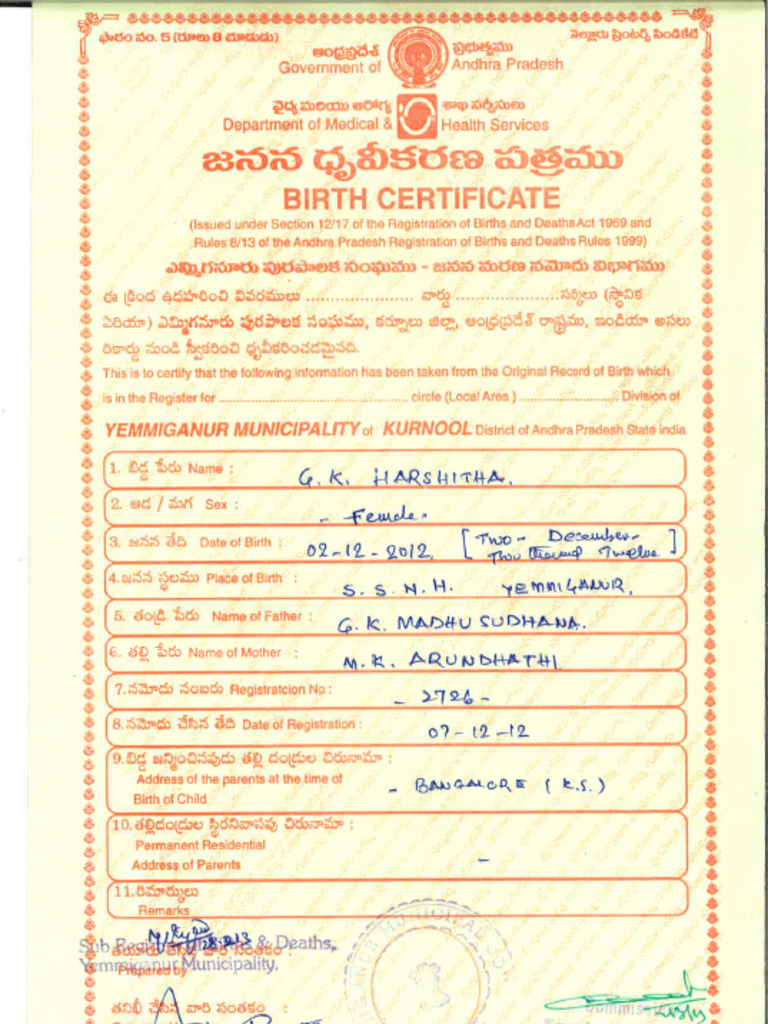 ఫారం నం. 5 (రూలు 8 చూడుడు)
నెల్లూరు ప్రింటర్స్ సిండికేట్
ఆంధ్రప్రదేశ్ ప్రభుత్వము
Government of Andhra Pradesh
వైద్య మరియు ఆరోగ్య శాఖ సర్వీసులు
Department of Medical & Health Services
జనన ధృవీకరణ పత్రము
BIRTH CERTIFICATE
(Issued under Section 12/17 of the Registration of Births and Deaths Act 1969 and
Rules 8/13 of the Andhra Pradesh Registration of Births and Deaths Rules 1999)
ఎమ్మిగనూరు పురపాలక సంఘము - జనన మరణ నమోదు విభాగము
ఈ క్రింద ఉదహరించి వివరములు ...................... వార్డు ...................... సర్కిలు (స్థానిక
ఏరియా) ఎమ్మిగనూరు పురపాలక సంఘము, కర్నూలు జిల్లా, ఆంధ్రప్రదేశ్ రాష్ట్రము, ఇండియా అసలు
రికార్డు నుండి స్వీకరించి ధృవీకరించడమైనది.
This is to certify that the following information has been taken from the Original Record of Birth which
is in the Register for ...................... circle (Local Area ) ...................... Division of
YEMMIGANUR MUNICIPALITY of KURNOOL District of Andhra Pradesh State India
1. బిడ్డ పేరు Name : G. K. HARSHITHA.
2. ఆడ / మగ Sex : - Female -
3. జనన తేది Date of Birth : 02-12-2012. [ Two - December -
Two thousand Twelve ]
4. జనన స్థలము Place of Birth : S. S. N. H. YEMMIGANUR,
5. తండ్రి పేరు Name of Father : G. K. MADHU SUDHANA.
6. తల్లి పేరు Name of Mother : M. K. ARUNDHATHI
7. నమోదు నంబరు Registratcion No : - 2726 -
8. నమోదు చేసిన తేది Date of Registration : 07-12-12
9. బిడ్డ జన్మించినపుడు తల్లి దండ్రుల చిరునామా :
Address of the parents at the time of
Birth of Child - BANGALORE ( K.S.)
10. తల్లిదండ్రుల స్థిరనివాసపు చిరునామా :
Permanent Residential
Address of Parents -
11. రిమార్కులు
Remarks
Sub & Deaths,
తయారు చేసిన వారి సంతకం :
Yemmiganur Municipality.
Prepared by
తనిఖీ చేసిన వారి సంతకం :